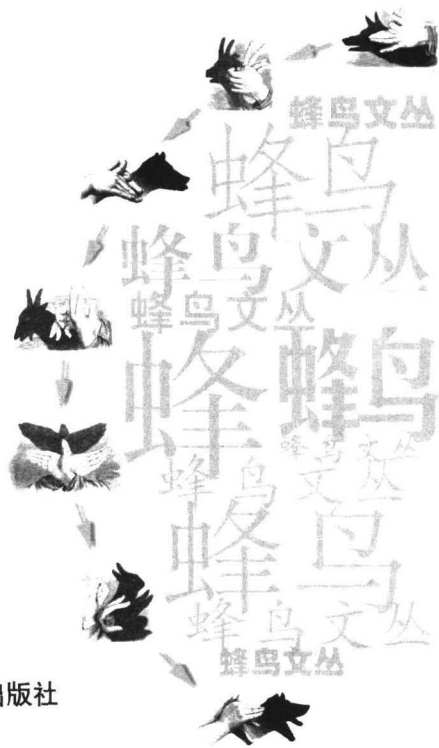 蜂鸟文丛
蜂鸟
蜂鸟文丛
蜂鸟文丛
蜂 蜂鸟
蜂鸟文丛
蜂鸟文丛
蜂鸟
蜂鸟文丛
蜂鸟文丛
版社